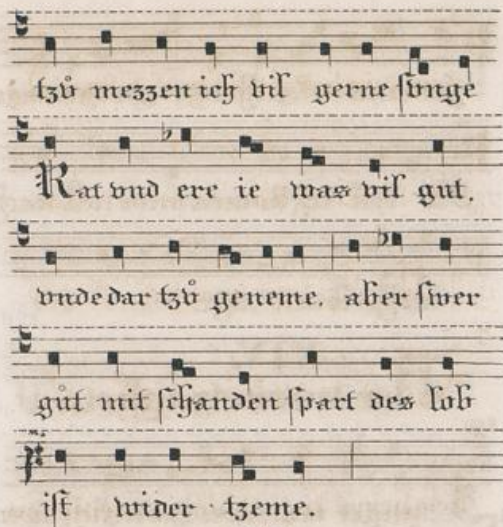 tzů mezzen ich vil gerne svnge
Rat vnd ere ie was vil gut.
vnde dar tzů geneme. aber swer
gůt mit schanden spart des lob
ist wider tzeme.